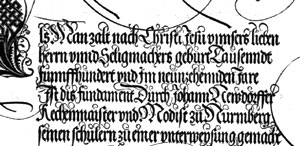 Als Man zalt nach Christi Jesu vnnsers lieben
herrn vnnd Seligmachers geburt Tausenndt
Fünffhundert vnd Im neunzehennden Jare
Ist dis fundament Durch Johann Newdörffer
Rechenmaister vnd Modist zu Nürmberg
seinen schulern zu einer vnterweysung gemacht